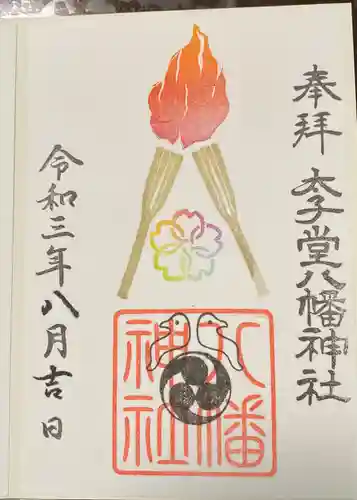 奉拝 太子堂八幡神社
八幡
神社
令和三年八月吉日